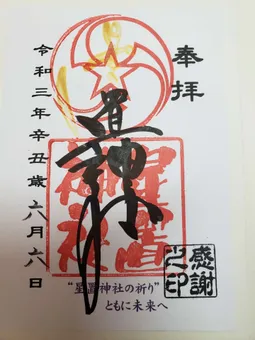 奉拝
星置
神社
令和三年辛丑歳六月六日
感謝
之印
“星置神社の祈り”
ともに未来へ